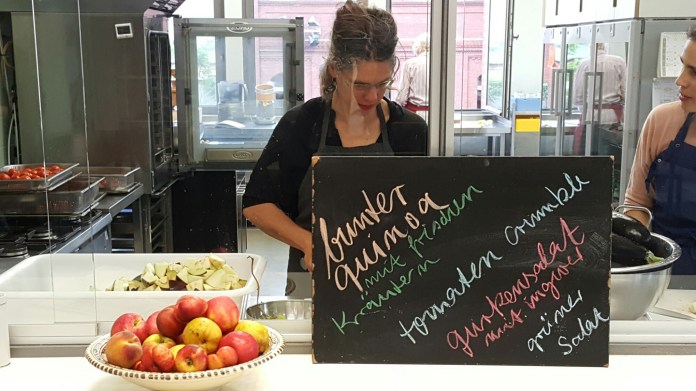 bunter
quinoa
mit frischen
Kräutern
tomaten crumble
gurkensalat
mit ingwer
grüner
Salat